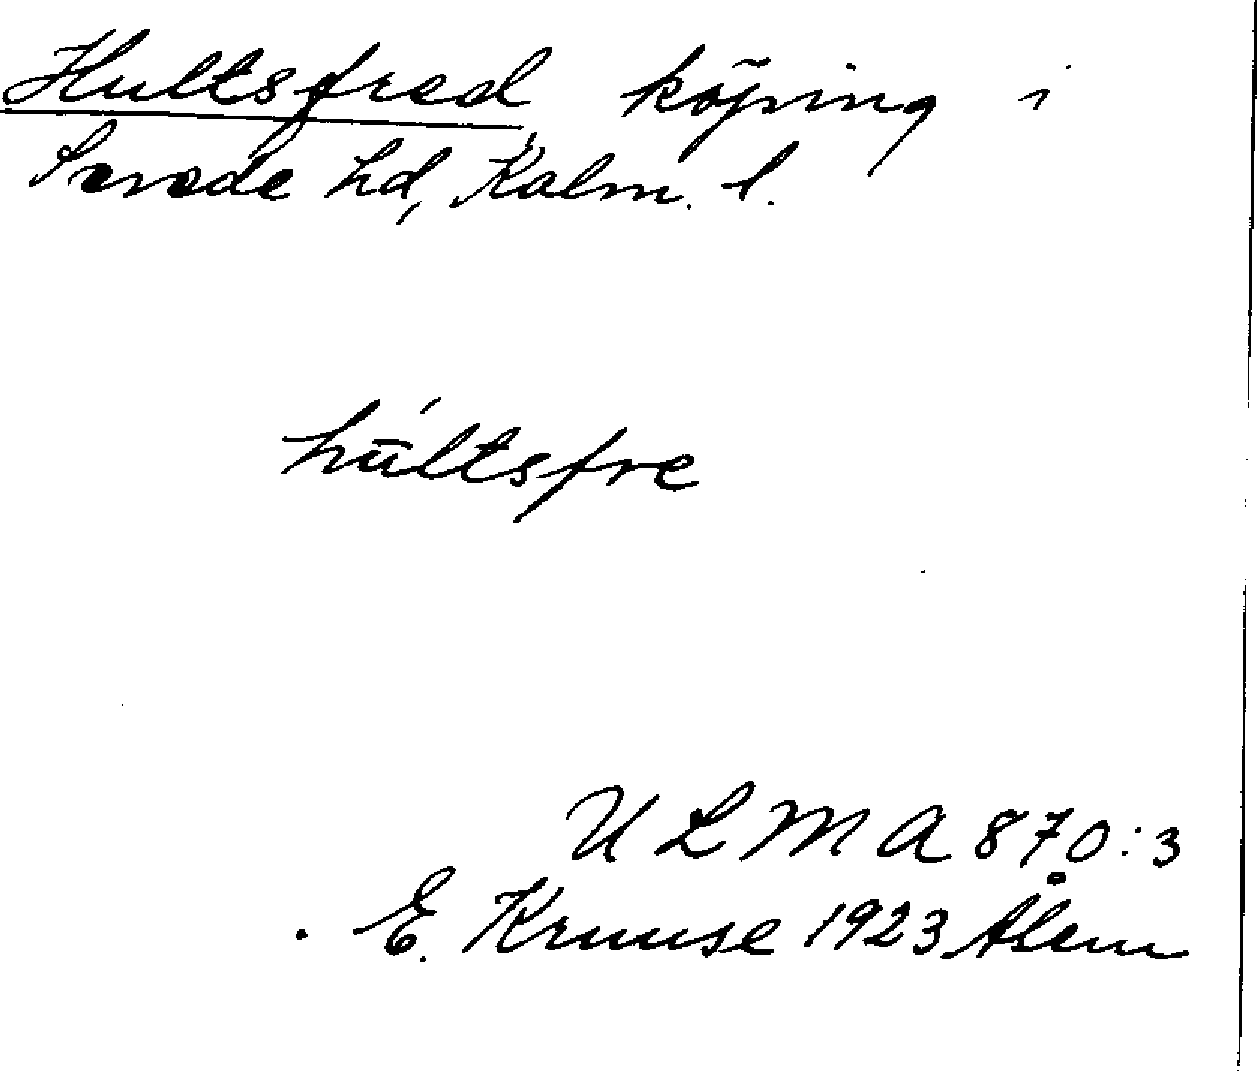 Hultsfred köping i
Sevede hd, Kalm. l.
húltsfre
ULMA 870:3
E. Kruuse 1923 Ålem